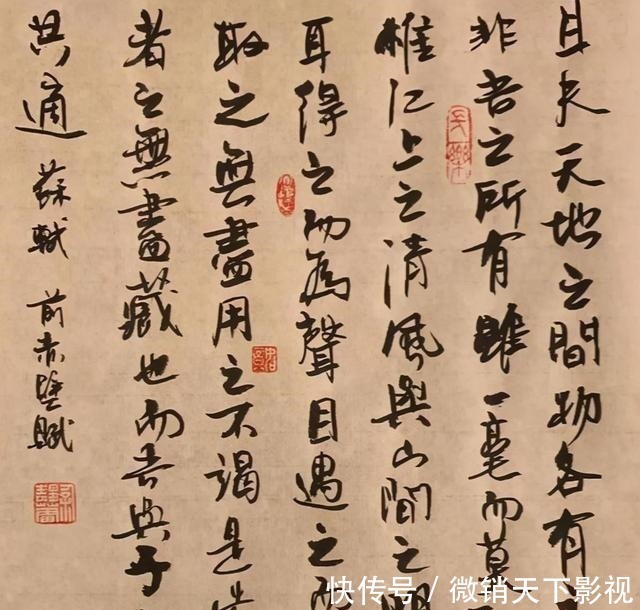 且夫天地之間物各有
非吾之所有雖一毫而莫
惟江上之清風與山間之
耳得之而為聲目遇之
取之無盡用之不竭是
者之無盡藏也而吾與子
共適 蘇軾 前赤壁賦
長樂
快传号 / 微销天下影视